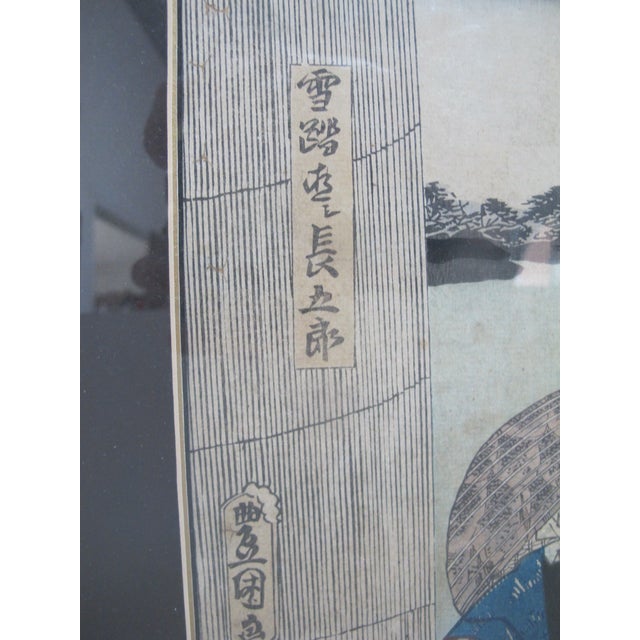 雪踏直長五郎
豊国画